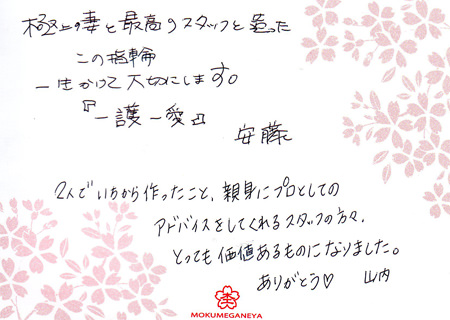 極上の妻と最高のスタッフと造った
この指輪
一生かけて大切にします。
『一護一愛』
安藤
2人でいちから作ったこと、親身にプロとしての
アドバイスをしてくれるスタッフの方々、
とっても価値あるものになりました。
ありがとう♡ 山内
MOKUMEGANEYA